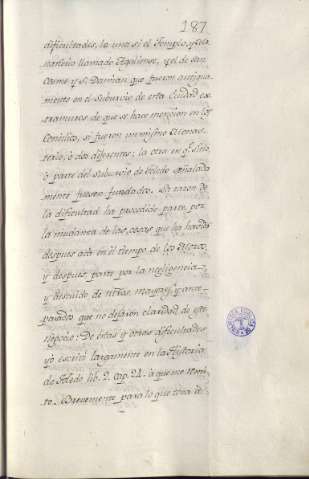 187
dificultades, la una si el Templo, y Mo
nasterio llamado Agaliense, y el de San
Cosme y S. Damian que fueron antigua
mente en el Suburvio de esta Ciudad ex
tramuros de que se hace mencion en los
Concilios, si fueron un mismo Monas
terio, o dos diferentes: la otra en q.e sitio
o parte del Suburvio de Toledo señalada
mente fuesen fundados. La razon de
la dificultad ha procedido parte por
la mudanza de las cosas que ha havido
despues acá en el tiempo de los Moros,
y despues, parte por la negligencia
y descuido de n̄ros mayores y ante
pasados que no dejaron claridad de este
negocio: De estas y otras dificultades
yo escribí largamente en la Historia
de Toledo lib. 2. cap. 24. à que me remi
to. Brevemente para lo que toca à